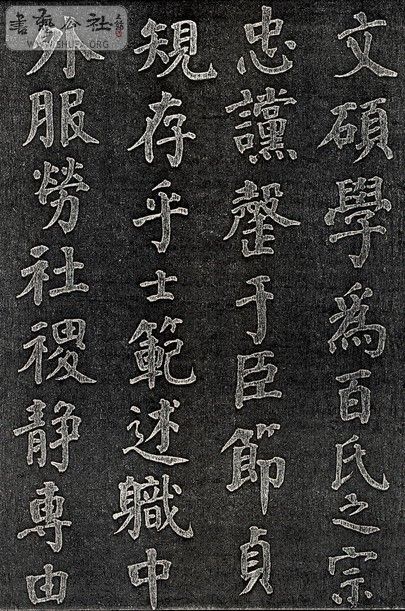 書藝公社
WWW.SHUFA.ORG
文碩學爲百氏之宗
忠讜罄于臣節貞
規存乎士範述軄中
外服勞社稷静專由